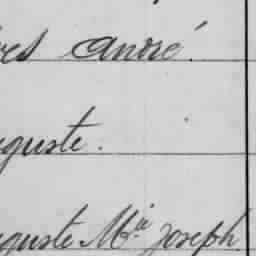 André.
guste.
guste Mie Joseph